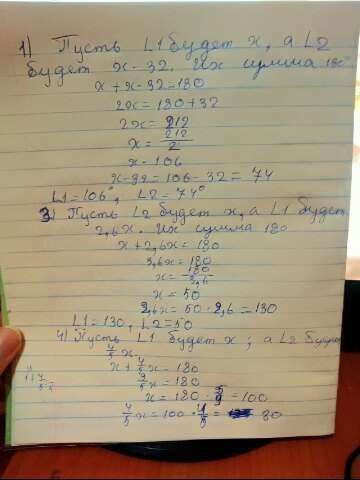 1) Пусть L1 будет x, а L2
будет x - 32. Их сумма 180
x + x - 32 = 180
2x = 180 + 32
2x = 212
x = 212/2
x - 106
x - 32 = 106 - 32 = 74
L1 = 106°, L2 = 74°
3) Пусть L2 будет x, а L1 будет
2,6x. Их сумма 180
x + 2,6x = 180
3,6x = 180
x = 180/3,6
x = 50
2,6x = 50 · 2,6 = 130
L1 = 130, L2 = 50
4) Пусть L1 будет x; а L2 будет
4/5 x.
x + 4/5 x = 180
9/5 x = 180
x = 180 · 5/9 = 100
4/5 x = 100 · 4/5 = 80